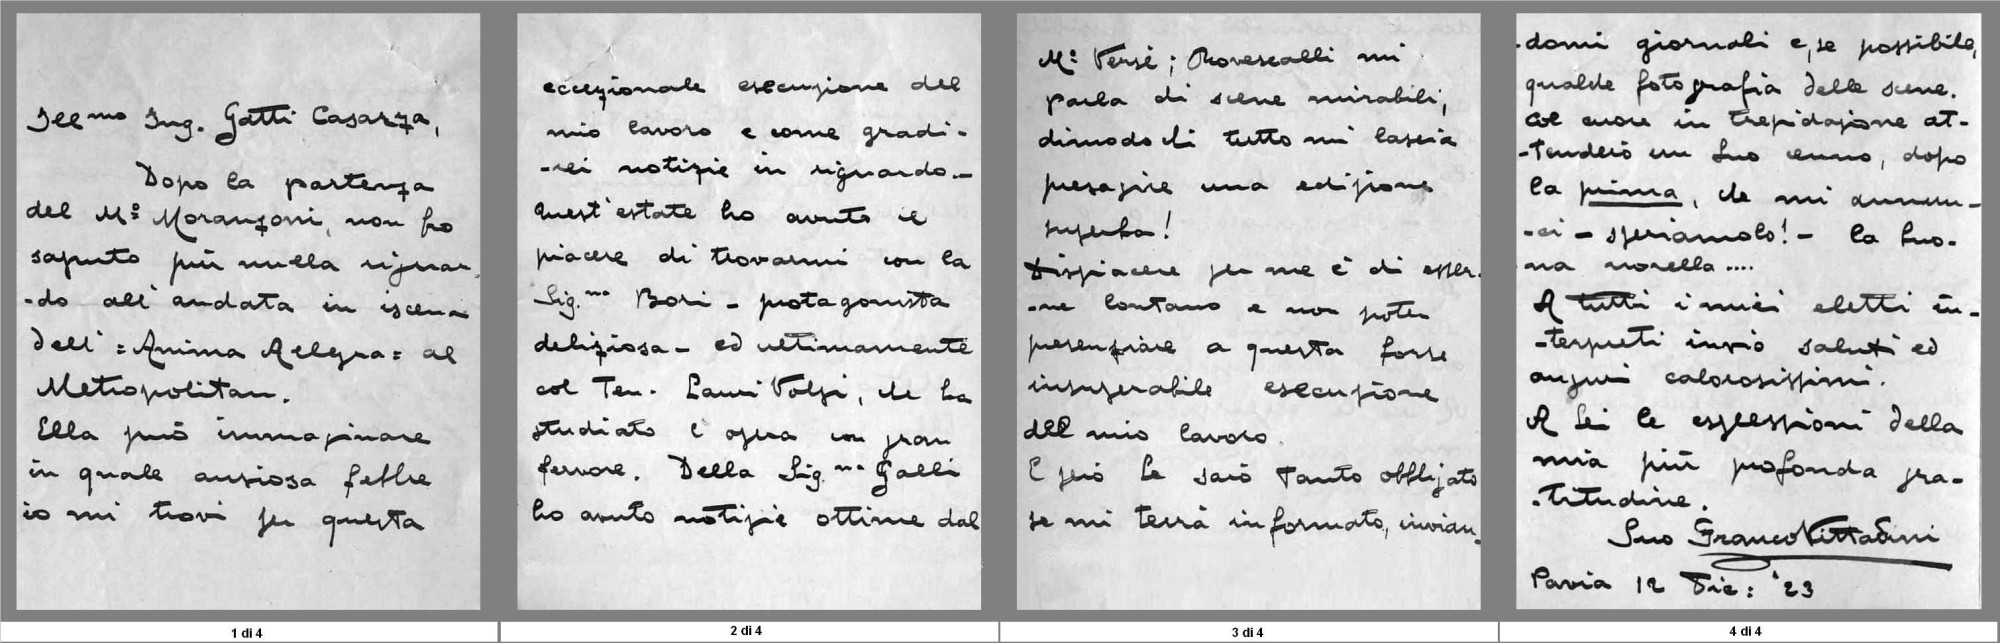 Ill mo Ing. Gatti Casazza,
Dopo la partenza
del M.º Moranzoni, non ho
saputo più nulla riguar-
-do all'andata in iscena
dell' =Anima Allegra= al
Metropolitan.
Ella può immaginare
in quale ansiosa febbre
io mi trovi per questa
1 di 4
eccezionale esecuzione del
mio lavoro e come gradi-
-rei notizie in riguardo.-
Quest'estate ho avuto il
piacere di trovarmi con la
Sig.na Bori - protagonista
deliziosa - ed ultimamente
col Ten. Lauri Volpi, che ha
studiato l'opera con gran
fervore. Della Sig.na Galli
ho avuto notizie ottime dal
2 di 4
M.º Versé; Rovescalli mi
parla di scene mirabili,
dimodoché tutto mi lascia
presagire una edizione
superba!
Dispiacere per me è di esser-
-ne lontano e non poter
presenziare a questa forse
insuperabile esecuzione
del mio lavoro.
E però Le sarò tanto obbligato
se mi terrà informato, invian-
3 di 4
-domi giornali e, se possibile,
qualche fotografia delle scene.
Col cuore in trepidazione at-
-tenderò un Suo cenno, dopo
la prima, che mi annun-
-ci - speriamolo! - la buo-
na novella....
A tutti i miei eletti in-
-terpreti invio saluti ed
auguri calorosissimi.
A Lei le espressioni della
mia più profonda gra-
-titudine.
Suo Franco Vittadini
Pavia 12 Dic: '23
4 di 4